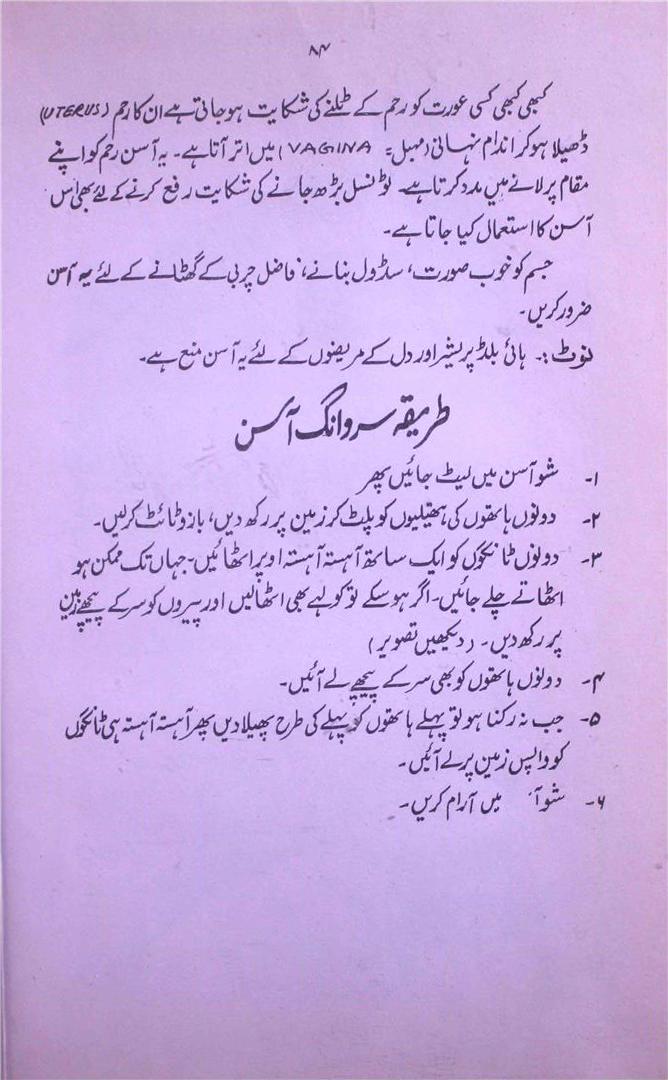 ۸۴
کبھی کبھی کسی عورت کو رحم کے ٹلنے کی شکایت ہو جاتی ہے ان کا رحم (UTERUS)
ڈھیلا ہو کر اندام نہانی (مہبل = VAGINA) میں اتر آتا ہے۔ یہ آسن رحم کو اپنے
مقام پر لانے میں مدد کرتا ہے۔ ٹونسل بڑھ جانے کی شکایت رفع کرنے کے لئے بھی اس
آسن کا استعمال کیا جاتا ہے۔
جسم کو خوب صورت، سڈول بنانے، فاضل چربی کے گھٹانے کے لئے یہ آسن
ضرور کریں۔
نوٹ:۔ ہائی بلڈ پریشر اور دل کے مریضوں کے لئے یہ آسن منع ہے۔
طریقہ سروانگ آسن
۱۔ شو آسن میں لیٹ جائیں پھر
۲۔ دونوں ہاتھوں کی ہتھیلیوں کو پلٹ کر زمین پر رکھ دیں، بازو ٹائٹ کر لیں۔
۳۔ دونوں ٹانگوں کو ایک ساتھ آہستہ آہستہ اوپر اٹھائیں۔ جہاں تک ممکن ہو
اٹھاتے چلے جائیں۔ اگر ہو سکے تو کولہے بھی اٹھا لیں اور پیروں کو سر کے پیچھے زمین
پر رکھ دیں۔ (دیکھیں تصویر)
۴۔ دونوں ہاتھوں کو بھی سر کے پیچھے لے آئیں۔
۵۔ جب نہ رکنا ہو تو پہلے ہاتھوں کو پہلے کی طرح پھیلا دیں پھر آہستہ آہستہ ہی ٹانگوں
کو واپس زمین پر لے آئیں۔
۶۔ شو آ میں آرام کریں۔